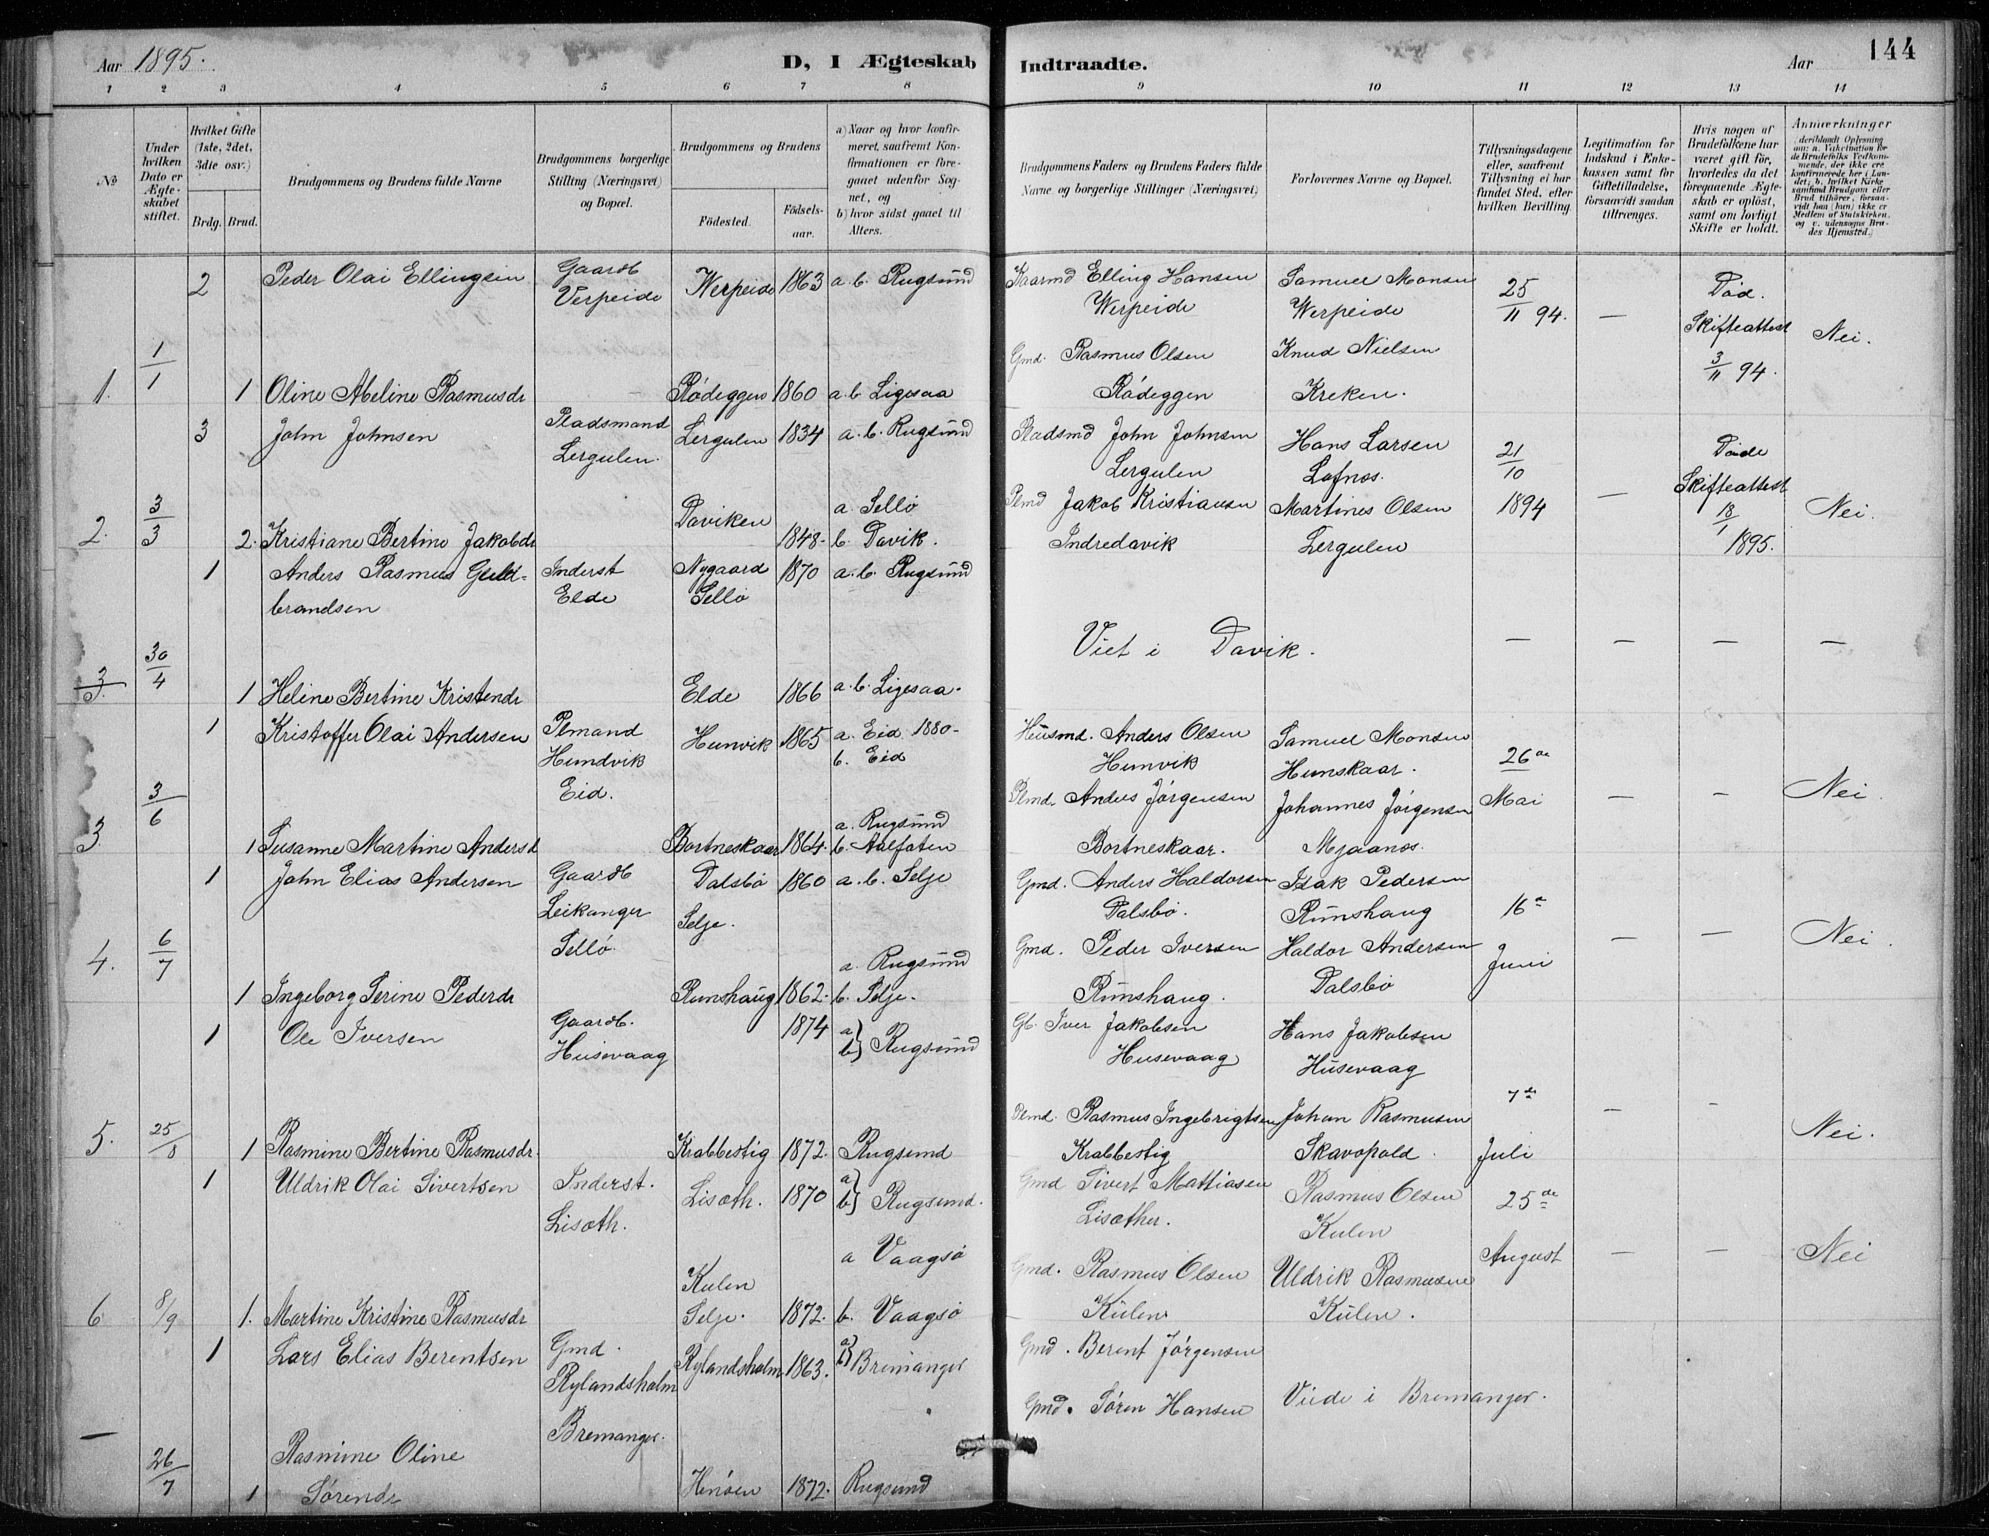 Aar 1895.
D, I Ægteskab Indtraadte.
Aar 144
1 2 3 4 5 6 7 8 9 10 11 12 13 14
№
Under hvilken Dato er Ægte-skabet stiftet.
Hvilket Gifte (1ste, 2det, 3die osv.)
Brdg. Brud.
Brudgommens og Brudens fulde Navne
Brudgommens borgerlige Stilling (Næringsvei) og Bopæl.
Brudgommens og Brudens
Fødested. Fødsels-aar.
a) Naar og hvor konfir-meret, saafremt Kon-firmationen er fore-gaaet udenfor Sog-net, og
b) hvor sidst gaaet til Alters.
Brudgommens Faders og Brudens Faders fulde Navne og borgerlige Stillinger (Næringsvei)
Forlovernes Navne og Bopæl.
Tillysningsdagene eller, saafremt Tillysning ei har fundet Sted, efter hvilken Bevilling
Legitimation for Indskud i Enke-kassen samt for Giftetilladelse, forsaavidt saadan tiltrænges.
Hvis nogen af Brudefolkene har været gift før, hvorledes da det foregaaende Ægte-skab er opløst, samt om lovligt Skifte er holdt.
Anmærkninger (deriblandt Oplysning om: a. Vakcination for de Brudefolks Vedkom-mende, der ikke ere konfirmerede her i Lan-det; b. hvilket Kirke samfund Brudgom eller Brud tilhører, forsaa-vidt han (hun) ikke er Medlem af Statskirken, og c. udensogns Bru-des Hjemsted.)
2 Peder Olai Ellingsen Gaardb Verpeide Werpeide 1863 a. b. Rugsund Kaarmd Elling Hansen Werpeide Samuel Monsen Werpeide 25/11 94. — Død. Skifteattest 3/11 94. Nei.
1. 1/1 1 Oline Abeline Rasmusdr Rødeggen 1860 a. b. Ligesaa Gmd. Rasmus Olsen Rødeggen Knud Nielsen Kreken.
3 John Johnsen Pladsmand Lergulen. Lergulen 1834 a. b. Rugsund Pladsmd John Johnsen Lergulen Hans Larsen Lofnos. 21/10 1894 — Døde Skifteattest 18/1 1895. Nei.
2. 3/3 2. Kristiane Bertine Jakobdr Daviken 1848. a. Sellø b. Davik. Plmd Jakob Kristiansen Indredavik Martines Olsen Lergulen
1 Anders Rasmus Guldbrandsen Inderst Elde Nygaard Sellø 1870 a. b. Rugsund
Viet i Davik. — — — —
3. 30/4 1 Heline Bertine Kristendr Elde 1866 a. b. Ligesaa.
1 Kristoffer Olai Andersen Plmand Hundvik Eid. Hunvik 1865 a. Eid 1880 - b. Eid Husmd. Anders Olsen Hunvik Samuel Monsen Hunskaar. 26de Mai — — Nei.
3. 3/6 1 Susanne Martine Andersd Bortneskaar 1864. a. Rugsund b. Aalfoten Plmd. Anders Jørgensen Bortneskaar. Johannes Jørgensen Mjaanos.
1 John Elias Andersen Gaardb Leikanger Sellø. Dalsbø Selje. 1860 a. b. Selje Gmd. Anders Haldorsen Dalsbø. Isak Pedersen Runshaug 16de Juni — — Nei.
4. 6/7 1 Ingeborg Serine Pederdr Runshaug 1862. a. Rugsund b. Selje. Gmd. Peder Iversen Runshaug. Haldor Andersen Dalsbø
1 Ole Iversen Gaardb. Husevaag 1874 a) b) Rugsund Gb. Iver Jakobsen Husevaag Hans Jakobsen Husevaag 7de Juli — — Nei.
5. 25/8 1 Rasmine Bertine Rasmusdr. Krabbestig 1872. Rugsund Plmd. Rasmus Ingebrigtsen Krabbestig Johan Rasmusen Skavøpold.
1 Uldrik Olai Sivertsen Inderst. Lisæth. Lisæth. 1870 a) b) Rugsund. Gmd Sivert Mattiasen Lisæther. Rasmus Olsen Kulen 25de August — — Nei
6 8/9 1. Martine Kristine Rasmusdr Kulen Selje. 1872. a Vaagsø b. Vaagsø Gmd. Rasmus Olsen Kulen Uldrik Rasmusen Kulen.
1 Lars Elias Berentsen Gmd. Rylandsholm Bremanger. Rylandsholm 1863. a) b) Bremanger Gmd. Berent Jørgensen
Viede i Bremanger.
— 26/7 1 Rasmine Oline Sørendr 1872. Rugsund Gmd. Søren Hansen